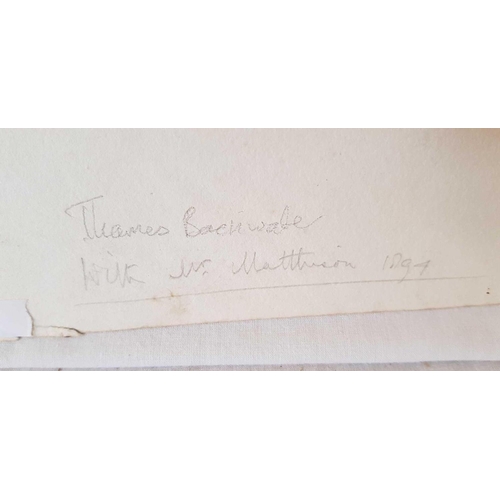 Thames Backwater
With Mr. Matthison 1894